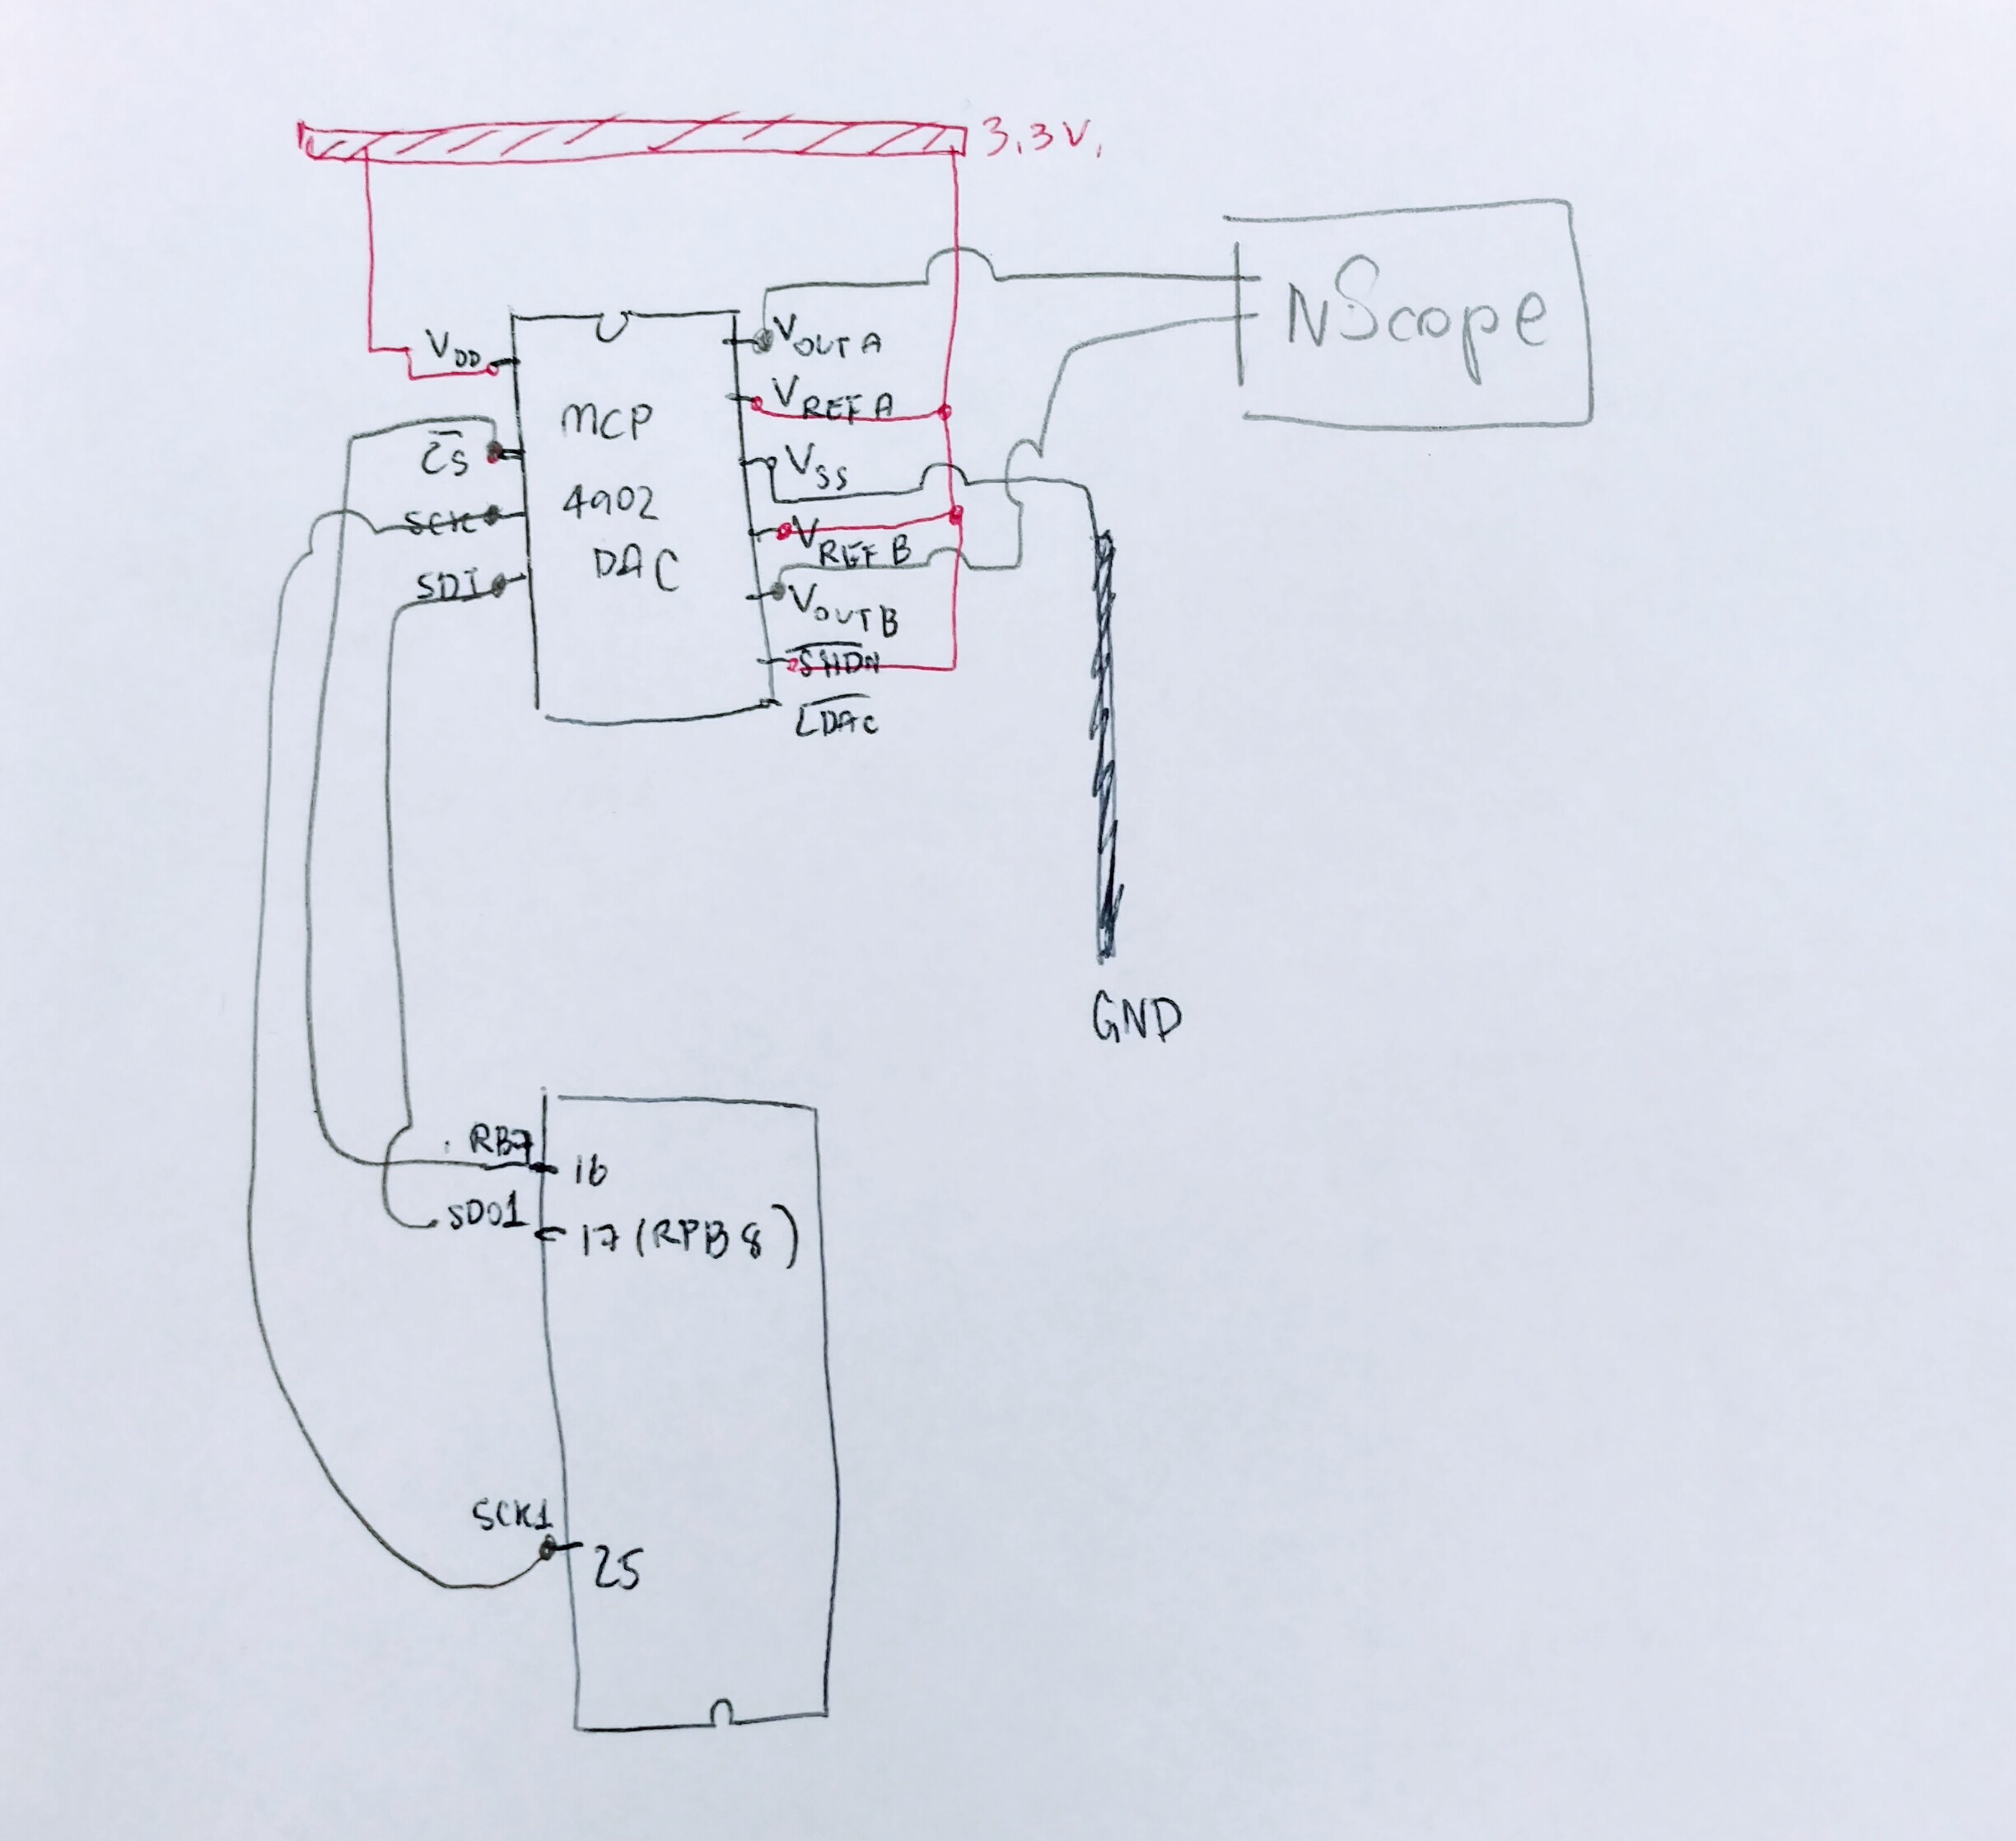 3.3V.
NScope
VDD
CS
SCK
SDI
MCP
4902
DAC
VOUTA
VREFA
VSS
VREFB
VOUTB
SHDN
LDAC
GND
RB7
16
SDO1
17 (RPB8)
SCK1
25